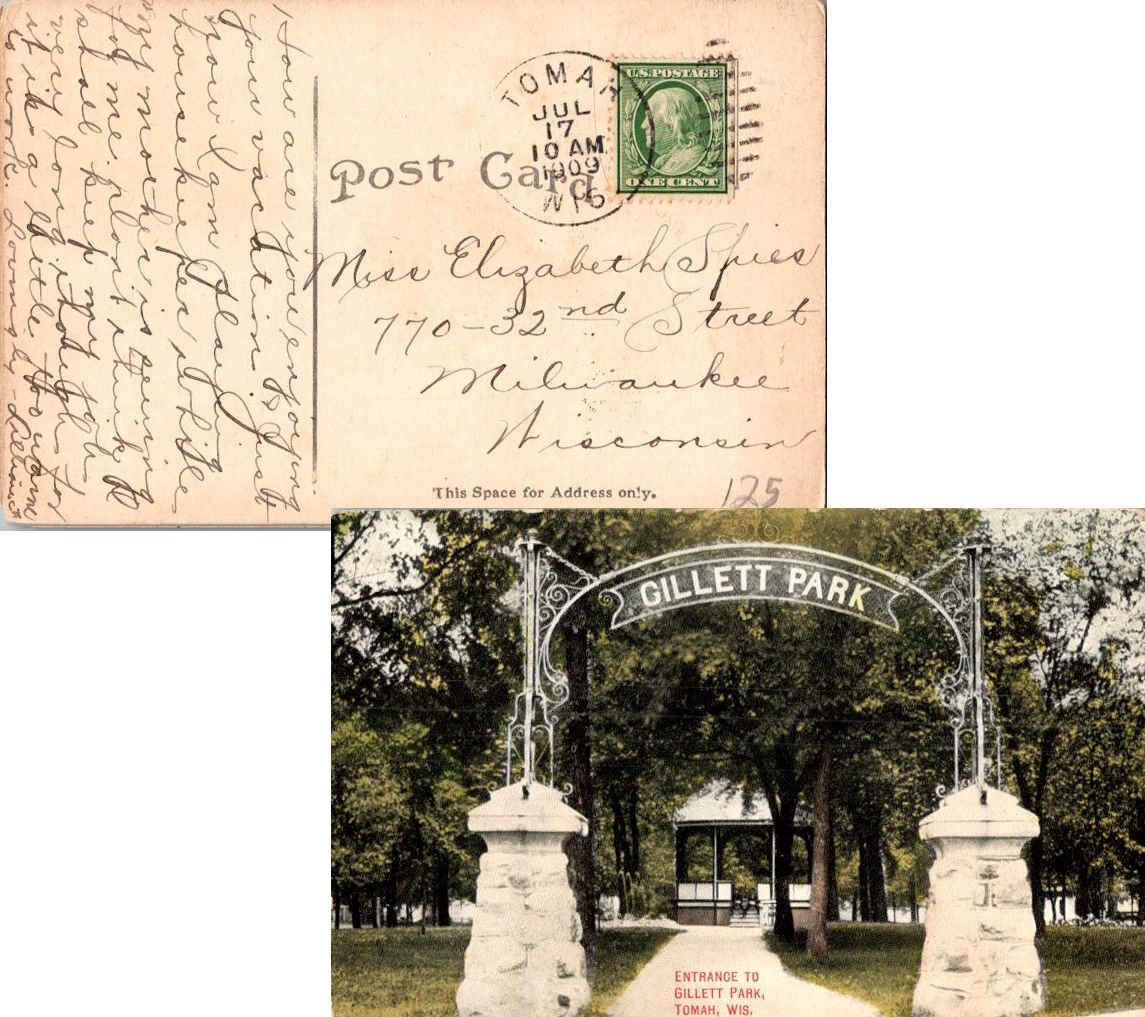 How are you enjoying
your vacation. I Just
now I am Playing
housekeeper while
my mother is sewing
for me. I don't think I
shall keep my job
very long, it
it is a little too warm
to work. Lovingly
TOMAH
JUL
17
10 AM
1909
WIS
U.S. POSTAGE
ONE CENT
Post Card
Miss Elizabeth Spies
770-32nd Street
Milwaukee
Wisconsin
This Space for Address only.
125
GILLETT PARK
ENTRANCE TO
GILLETT PARK,
TOMAH, WIS.